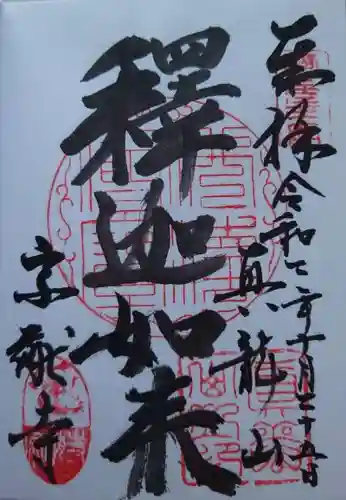 奉拝 令和二年十月二十五日
真龍山
釋迦如来
宗龍寺